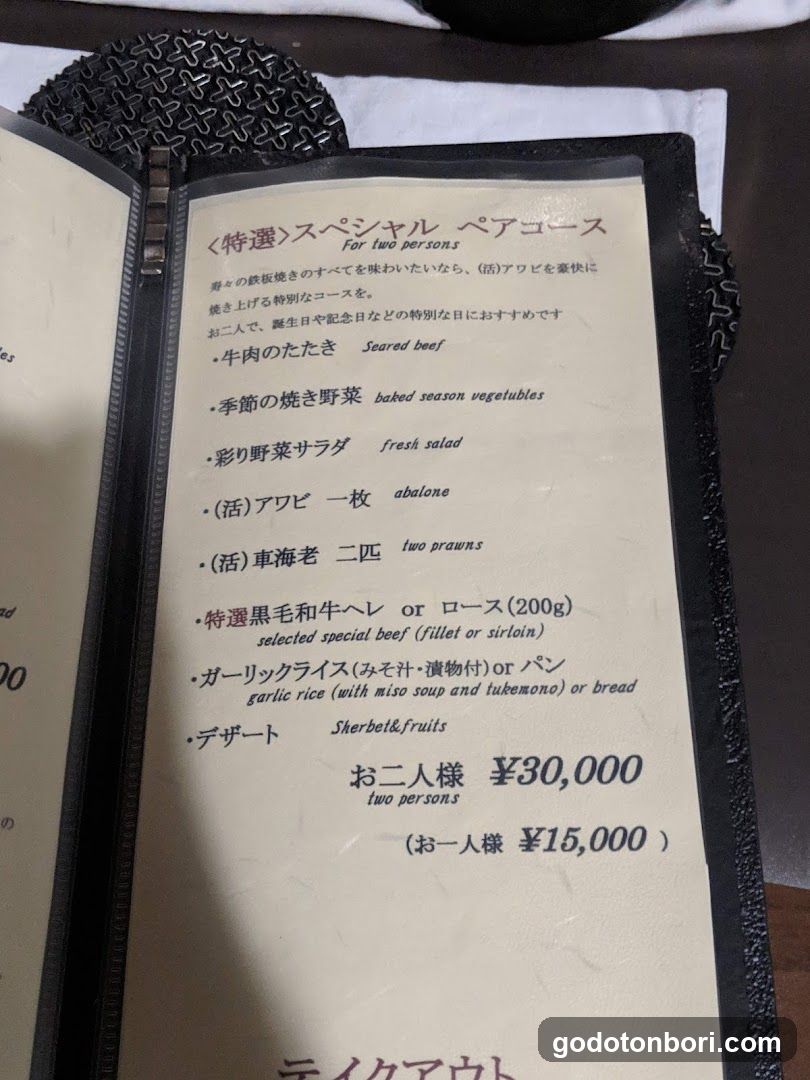 <特選>スペシャル ペアコース
For two persons
寿々の鉄板焼きのすべてを味わいたいなら、(活)アワビを豪快に
焼き上げる特別なコースを。
お二人で、誕生日や記念日などの特別な日におすすめです
・牛肉のたたき Seared beef
・季節の焼き野菜 baked season vegetubles
・彩り野菜サラダ fresh salad
・(活)アワビ 一枚 abalone
・(活)車海老 二匹 two prawns
・特選黒毛和牛ヘレ or ロース(200g)
selected special beef (fillet or sirloin)
・ガーリックライス(みそ汁・漬物付)or パン
garlic rice (with miso soup and tukemono) or bread
・デザート Sherbet&fruits
お二人様 ¥30,000
two persons
(お一人様 ¥15,000 )
テイクアウト
godotonbori.com